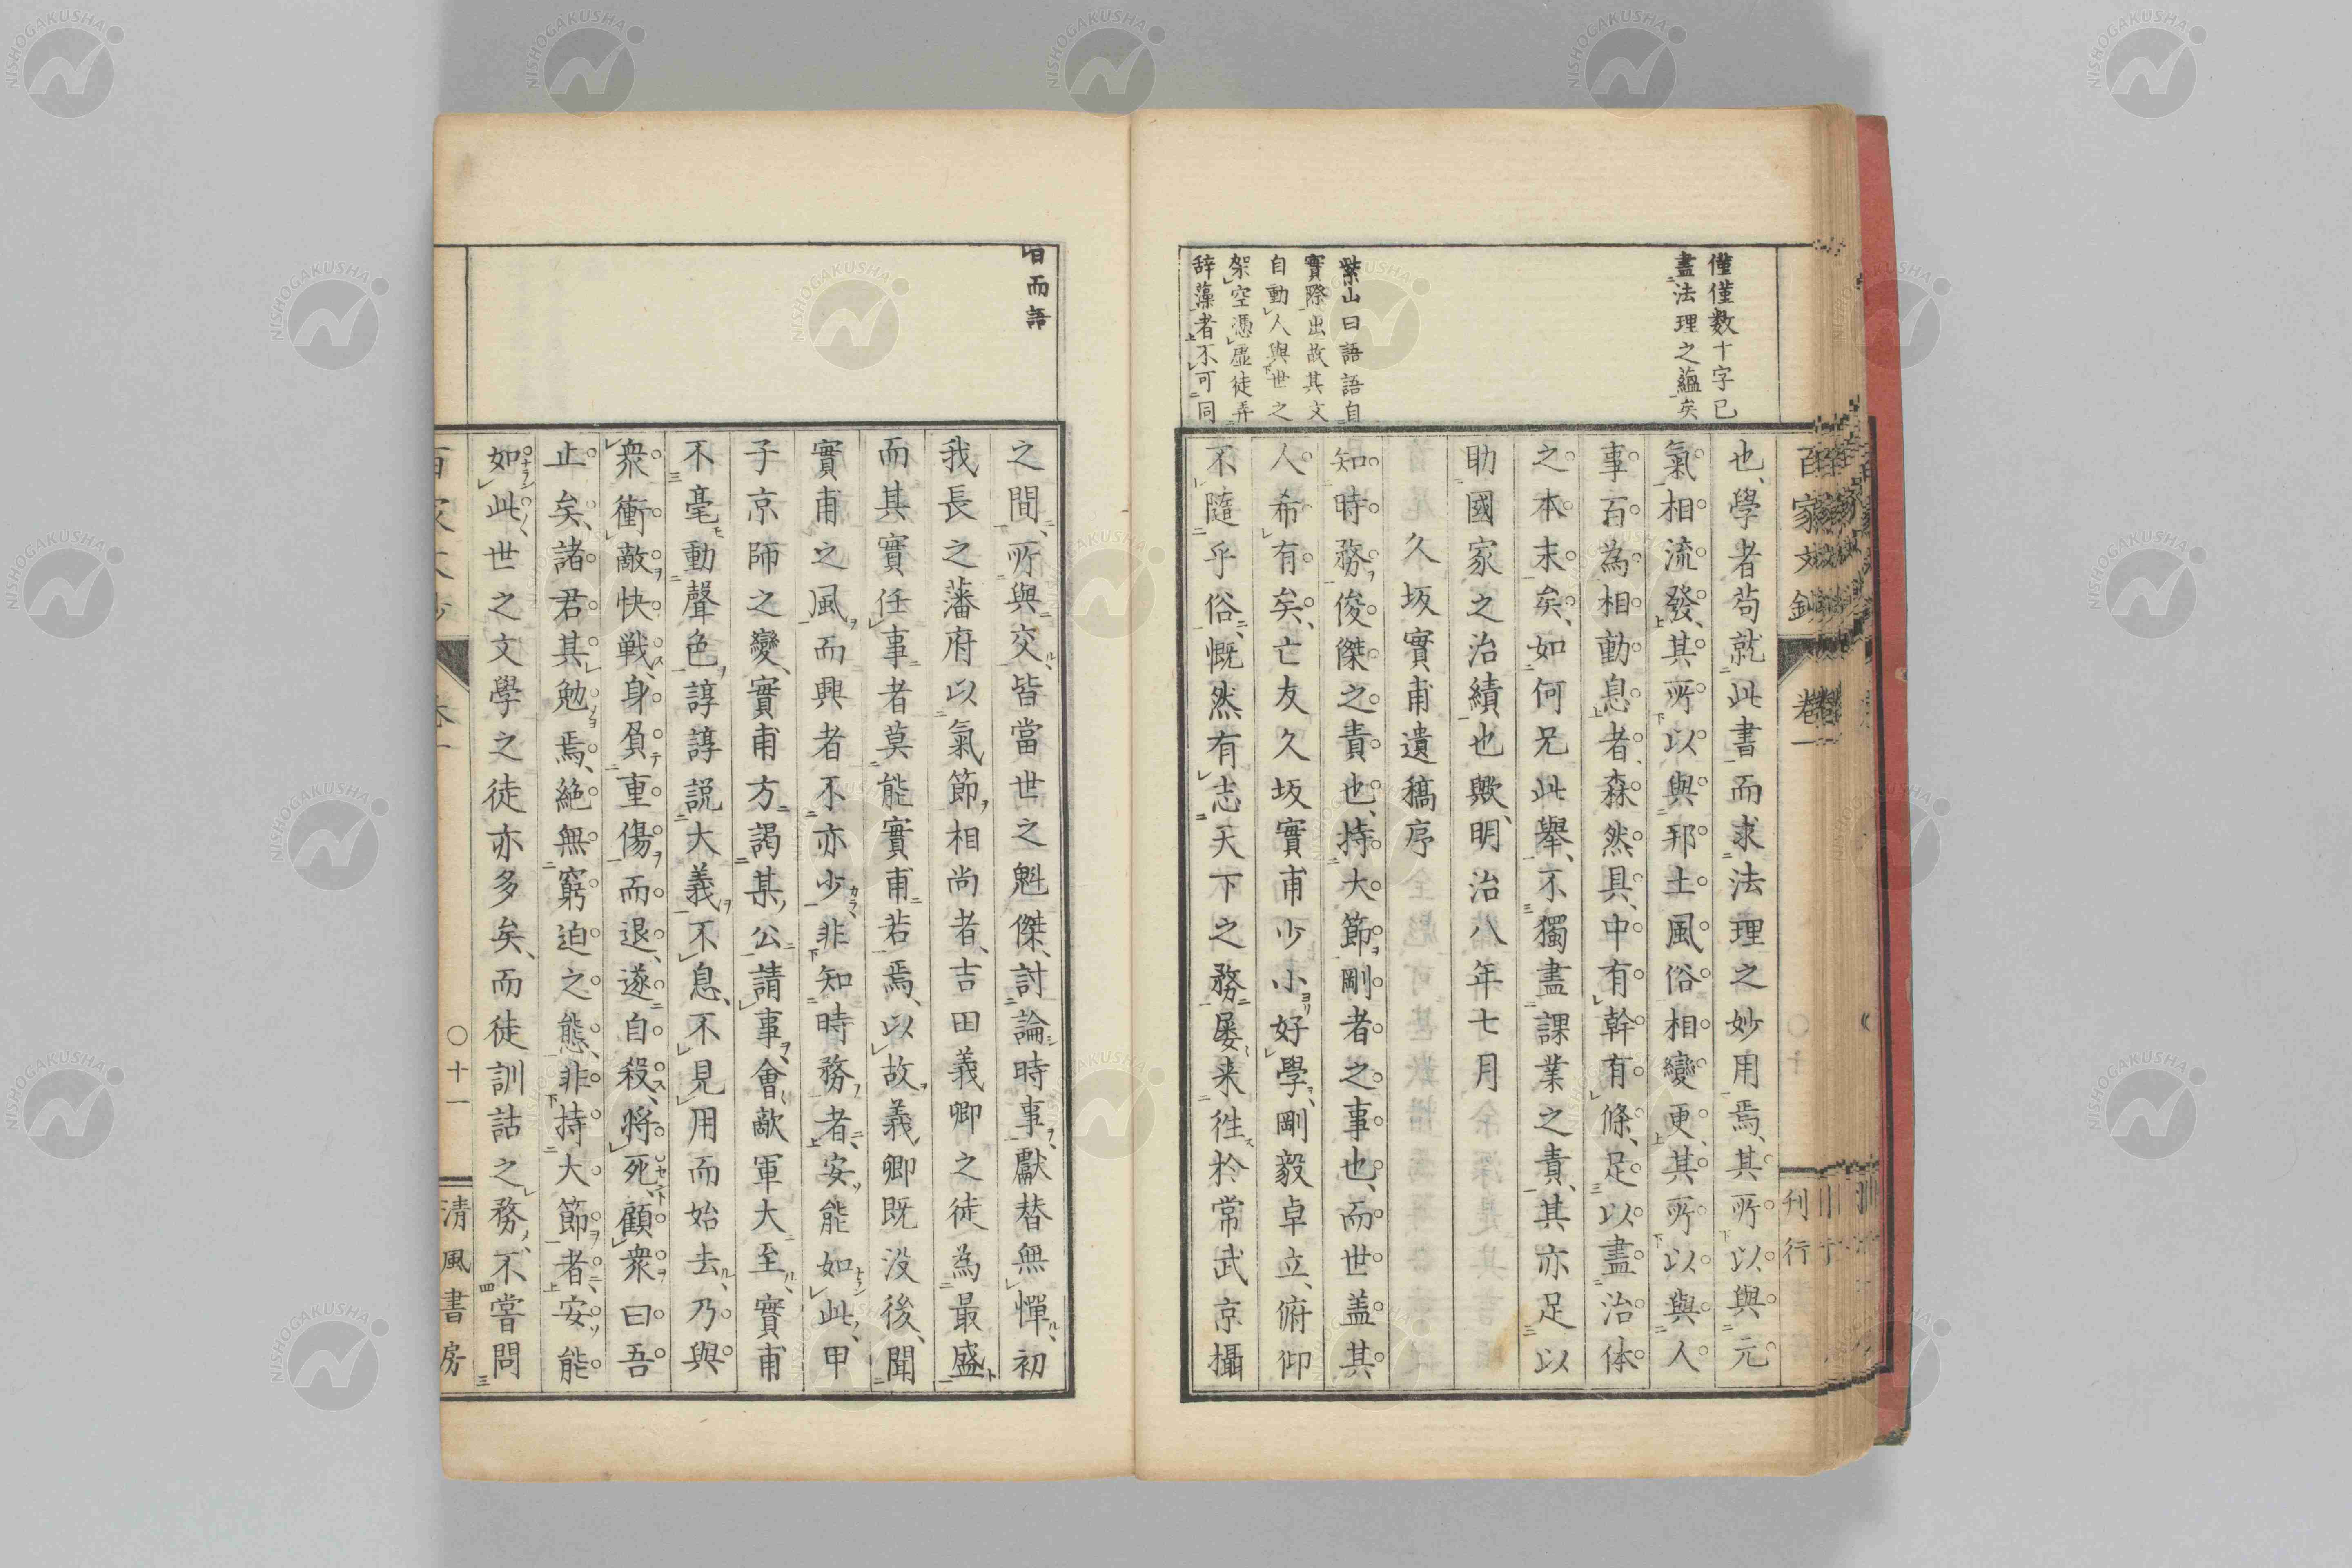 僅僅数十字已
盡法理之蘊矣
紫山曰語語自
實際出故其文
自動人與世之
架空憑虛徒弄
辞藻者不可同
百家文鈔
卷一
刊行
也、學者苟就此書而求法理之妙用焉、其所以與元
氣相流發、其所以與邦土風俗相變更、其所以與人
事百為相動息者、森然具、中有幹有條、足以盡治体
之本末矣、如何兄此舉、不獨盡課業之責、其亦足以
助國家之治績也歟、明治八年七月
久坂實甫遺稿序
知時務俊傑之責也、持大節剛者之事也、而世盖其
人希有矣、亡友久坂實甫少小好學、剛毅卓立、俯仰
不隨乎俗、慨然有志天下之務、屡来徃於常武京攝
日而語
之間、所與交、皆當世之魁傑、討論時事、獻替無憚、初
我長之藩府以氣節相尚者、吉田義卿之徒為最盛
而其實任事者莫能實甫若焉、以故義卿既没後、聞
實甫之風而興者不亦少、非知時務者、安能如此、甲
子京師之變、實甫方謁某公請事、會敵軍大至、實甫
不毫動聲色、諄諄説大義不息、不見用而始去、乃與
衆衝敵快戦、身負重傷而退、遂自殺、将死、顧衆曰吾
止矣、諸君其勉焉、絶無窮迫之態、非持大節者、安能
如此、世之文學之徒亦多矣、而徒訓詁之務、不嘗問
十一
清風書房